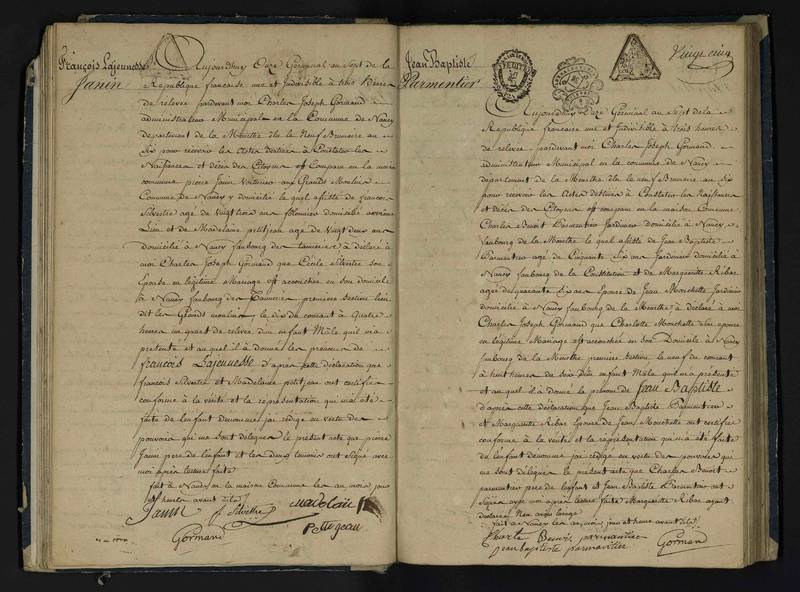 François Lajeunesse
Janin
Aujourdhuy Onze Germinal au Sept de la
Republique francaise une et Indivisible à trois heures
de relevée pardevant moi Charles Joseph Gormand
administrateur Municipal en la Commune de Nancy
departement de la Meurthe élu le Neuf Brumaire au
Six pour recevoir les Actes destinés à Constater les
Naissances et décès des Citoyens est Comparu en la maison
commune pierre Janin Voiturier aux Grands Moulins
Commune de Nancy y domicilié le quel assisté de francois
Silvestre age de vingt trois ans domicilié
Lieu et de Madelaine petitjean age de Vingt deux ans
domiciliée à Nancy faubourg des à déclaré à
moi Charles Joseph Gormand que Cécile Silvestre son
Epouse en légitime Mariage est accouchée en son domicile
à Nancy faubourg des premiere Section lieu
dit les Grands moulins le dix du courant à Quatre
heures un quart de relevée d'un enfant Mâle qu'il m'a
présenté et au quel il a donné les prenoms de
françois Lajeunesse d'apres cette déclaration que
francois Silvestre et Madelaine petitjean ont certifiée
conforme à la vérité et la représentation qui m'a été
faite de l'enfant denommé jai rédigé en vertu des
pouvoirs qui me sont délégués le présent acte que pierre
Janin pere de l'enfant et les deux temoins ont Signé avec
moi après lecture faite
fait à Nancy en la maison Commune les an mois jour
et heures avant dits
Janin f Silvestre Madelaine
Petitgean
Gormand
Jean Baptiste
Parmentier
Vingt cinq
Aujourdhuy Onze Germinal au Sept de la
Republique française une et Indivisible à trois heures
de relevée pardevant moi Charles Joseph Gormand
administrateur Municipal en la commune de Nancy
département de la Meurthe élu le neuf Brumaire au six
pour recevoir les Actes destinés à Constater les Naissances
et décès des Citoyens est comparu en la maison Commune
Charles Benoit Parmentier Jardinier domicilié à Nancy
faubourg de la Meurthe le quel assisté de Jean Baptiste
Parmentier age de Cinquante Six ans Jardinier domicilié à
Nancy faubourg de la Constitution et de Marguerite Ribar
agée de quarante Six ans Epouse de Jean Mouchette Jardinier
domiciliée à Nancy faubourg de la Meurthe, à déclaré à moi
Charles Joseph Gormand que Charlotte Mouchette son épouse
en légitime Mariage est accouchée en son Domicile à Nancy
faubourg de la Meurthe première section le neuf du courant
à huit heures du soir d'un enfant Mâle qu'il m'a présenté
et au quel il à donné le prénom de Jean Baptiste
d'après cette déclaration que Jean Baptiste Parmentier
et Marguerite Ribar Epouse de Jean Mouchette ont certifiée
conforme à la vérité et la représentation qui m'a été faite
de l'enfant denommé jai rédigé en vertu des pouvoirs qui
me sont délégués le présent acte que Charles Benoit
parmentier pere de l'enfant et Jean Baptiste Parmentier ont
Signés avec moi après lecture faite Marguerite Ribar ayant
déclaré Ne
fait à Nancy les an, mois, jour et heure avant dits
Charle Benoit parmantier
jean baptiste parmantier Gormand